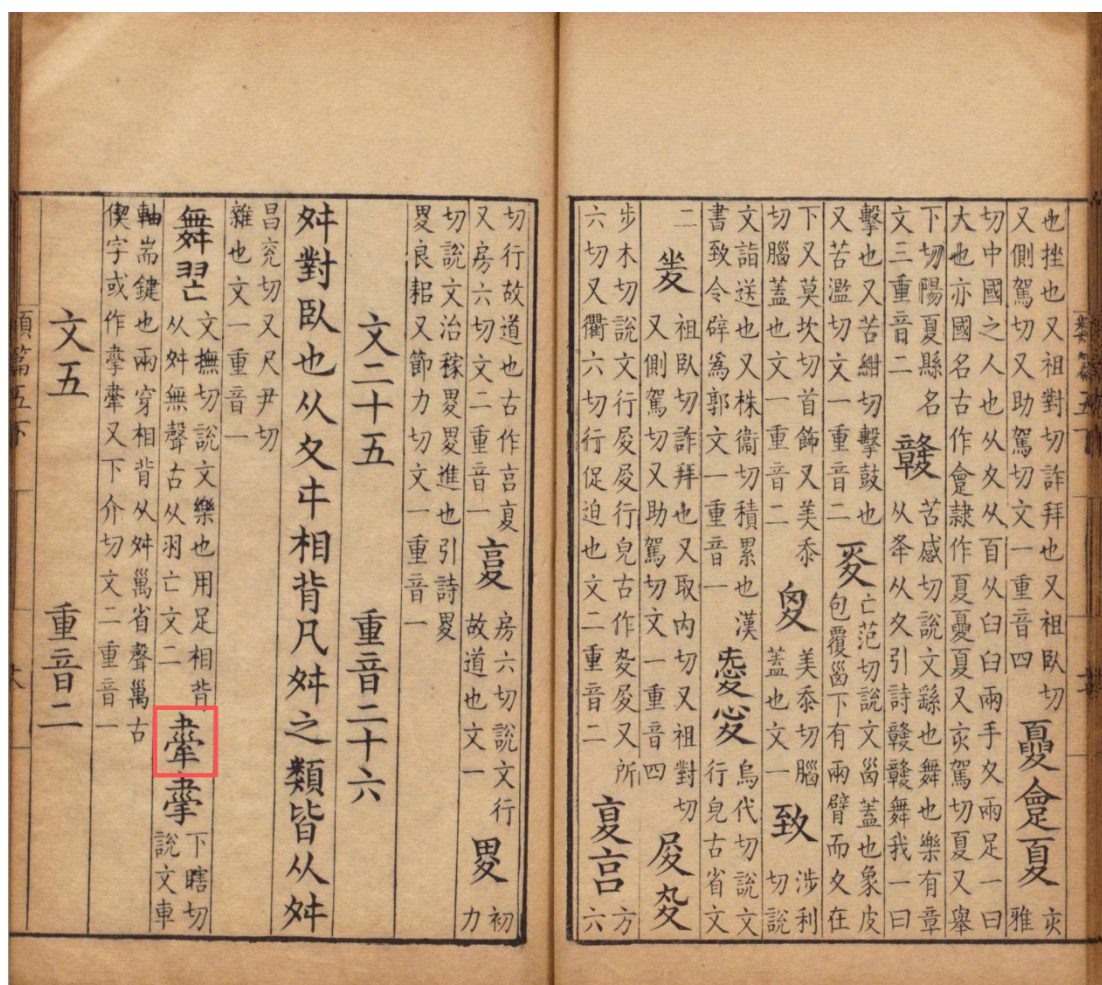 也挫也又祖對切詐拜也又祖臥切
又側駕切又助駕切文一重音四
夓夏
亥
雅
切中國之人也从夊从頁从臼臼兩手夊兩足一曰
大也亦國名古作隸作夏又亥駕切夏又舉
下切陽夏縣名
文三重音二
竷
苦感切說文繇也舞也樂有章
从夅从夊引詩竷竷舞我一曰
擊也又苦紺切擊鼓也
又苦濫切文一重音二
亡范切說文匘蓋也象皮
包覆匘下有兩臂而夊在
下又莫坎切首飾又美忝
切腦蓋也文一重音二
美忝切腦
蓋也文一
致
涉利
切說
文詣送也又株衞切積累也漢
書致令辟爲郭文一重音一
烏代切說文
行皃古省文
二
夎
祖臥切詐拜也又取内切又祖對切
又側駕切又助駕切文一重音四
步木切說文行行皃古作又所
六切又衢六切行促迫也文二重音二
方
六
切行故道也古作
又房六切文二重音一
房六切說文行
故道也文一
畟
初
力
切說文治稼畟畟進也引詩畟
畟良耜又節力切文一重音一
文二十五 重音二十六
舛對臥也从夊㐄相背凡舛之類皆从舛
昌兖切又尺尹切
雜也文一重音一
舞𦏶
文撫切說文樂也用足相背
从舛無聲古从羽亡文二
舝
下瞎切
說文車
軸耑鍵也兩穿相背从舛萬省聲萬古
偰字或作舝又下介切文二重音一
文五 重音二
類篇五下